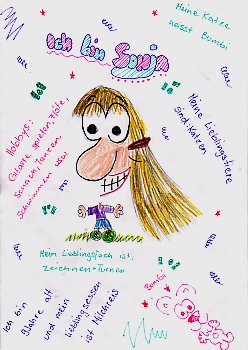 Meine Katze
heisst Bombi
Ich bin Sonja
Meine Lieblingstiere
sind: Katzen
Hobbys:
Gitarre spielen, Flöte,
Tanzen,
Schwimmen usw.
Mein Lieblingsfach ist:
zeichnen-Turnen
Ich bin
9 Jahre alt
und mein
Lieblingsessen
ist
Bombi